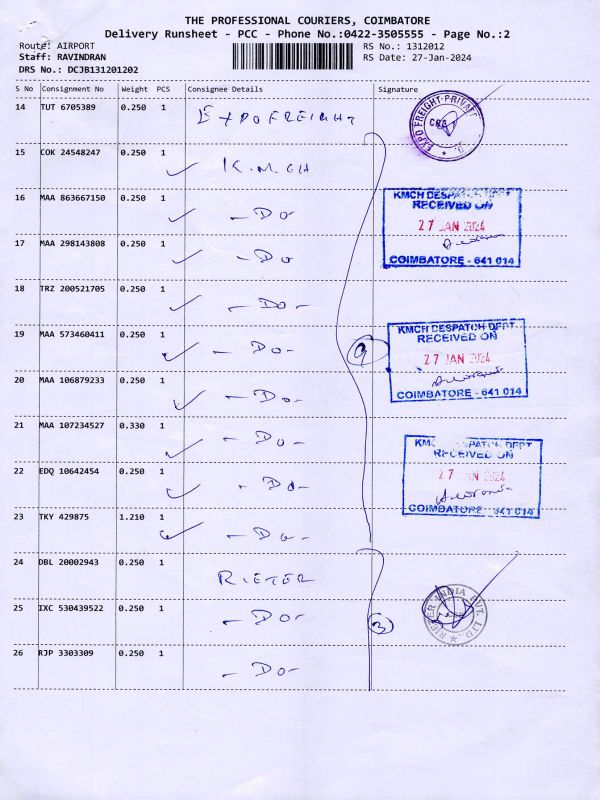 THE PROFESSIONAL COURIERS, COIMBATORE
Delivery Runsheet - PCC - Phone No.:0422-3505555 - Page No.:2
Route: AIRPORT RS No.: 1312012
Staff: RAVINDRAN RS Date: 27-Jan-2024
DRS No.: DCJB131201202
S No Consignment No Weight PCS Consignee Details Signature
14 TUT 6705389 0.250 1 EXPO FREIGHT
EXPO FREIGHT PRIVATE
CBE
15 COK 24548247 0.250 1 K.M.CH
16 MAA 863667150 0.250 1 - Do -
KMCH DESPATCH DEPT
RECEIVED ON
27 JAN 2024
COIMBATORE - 641 014
17 MAA 298143808 0.250 1 - Do
18 TRZ 200521705 0.250 1 - Do -
19 MAA 573460411 0.250 1 - Do -
9
KMCH DESPATCH DEPT
RECEIVED ON
27 JAN 2024
COIMBATORE - 641 014
20 MAA 106879233 0.250 1 - Do -
21 MAA 107234527 0.330 1 - Do -
KMCH DESPATCH DEPT
RECEIVED ON
27 JAN 2024
COIMBATORE - 641 014
22 EDQ 10642454 0.250 1 - Do -
23 TKY 429875 1.210 1 - Do -
24 DBL 20002943 0.250 1 RIETER
25 IXC 530439522 0.250 1 - Do -
3
RIETER INDIA PVT. LTD.
26 RJP 3303309 0.250 1 - Do -